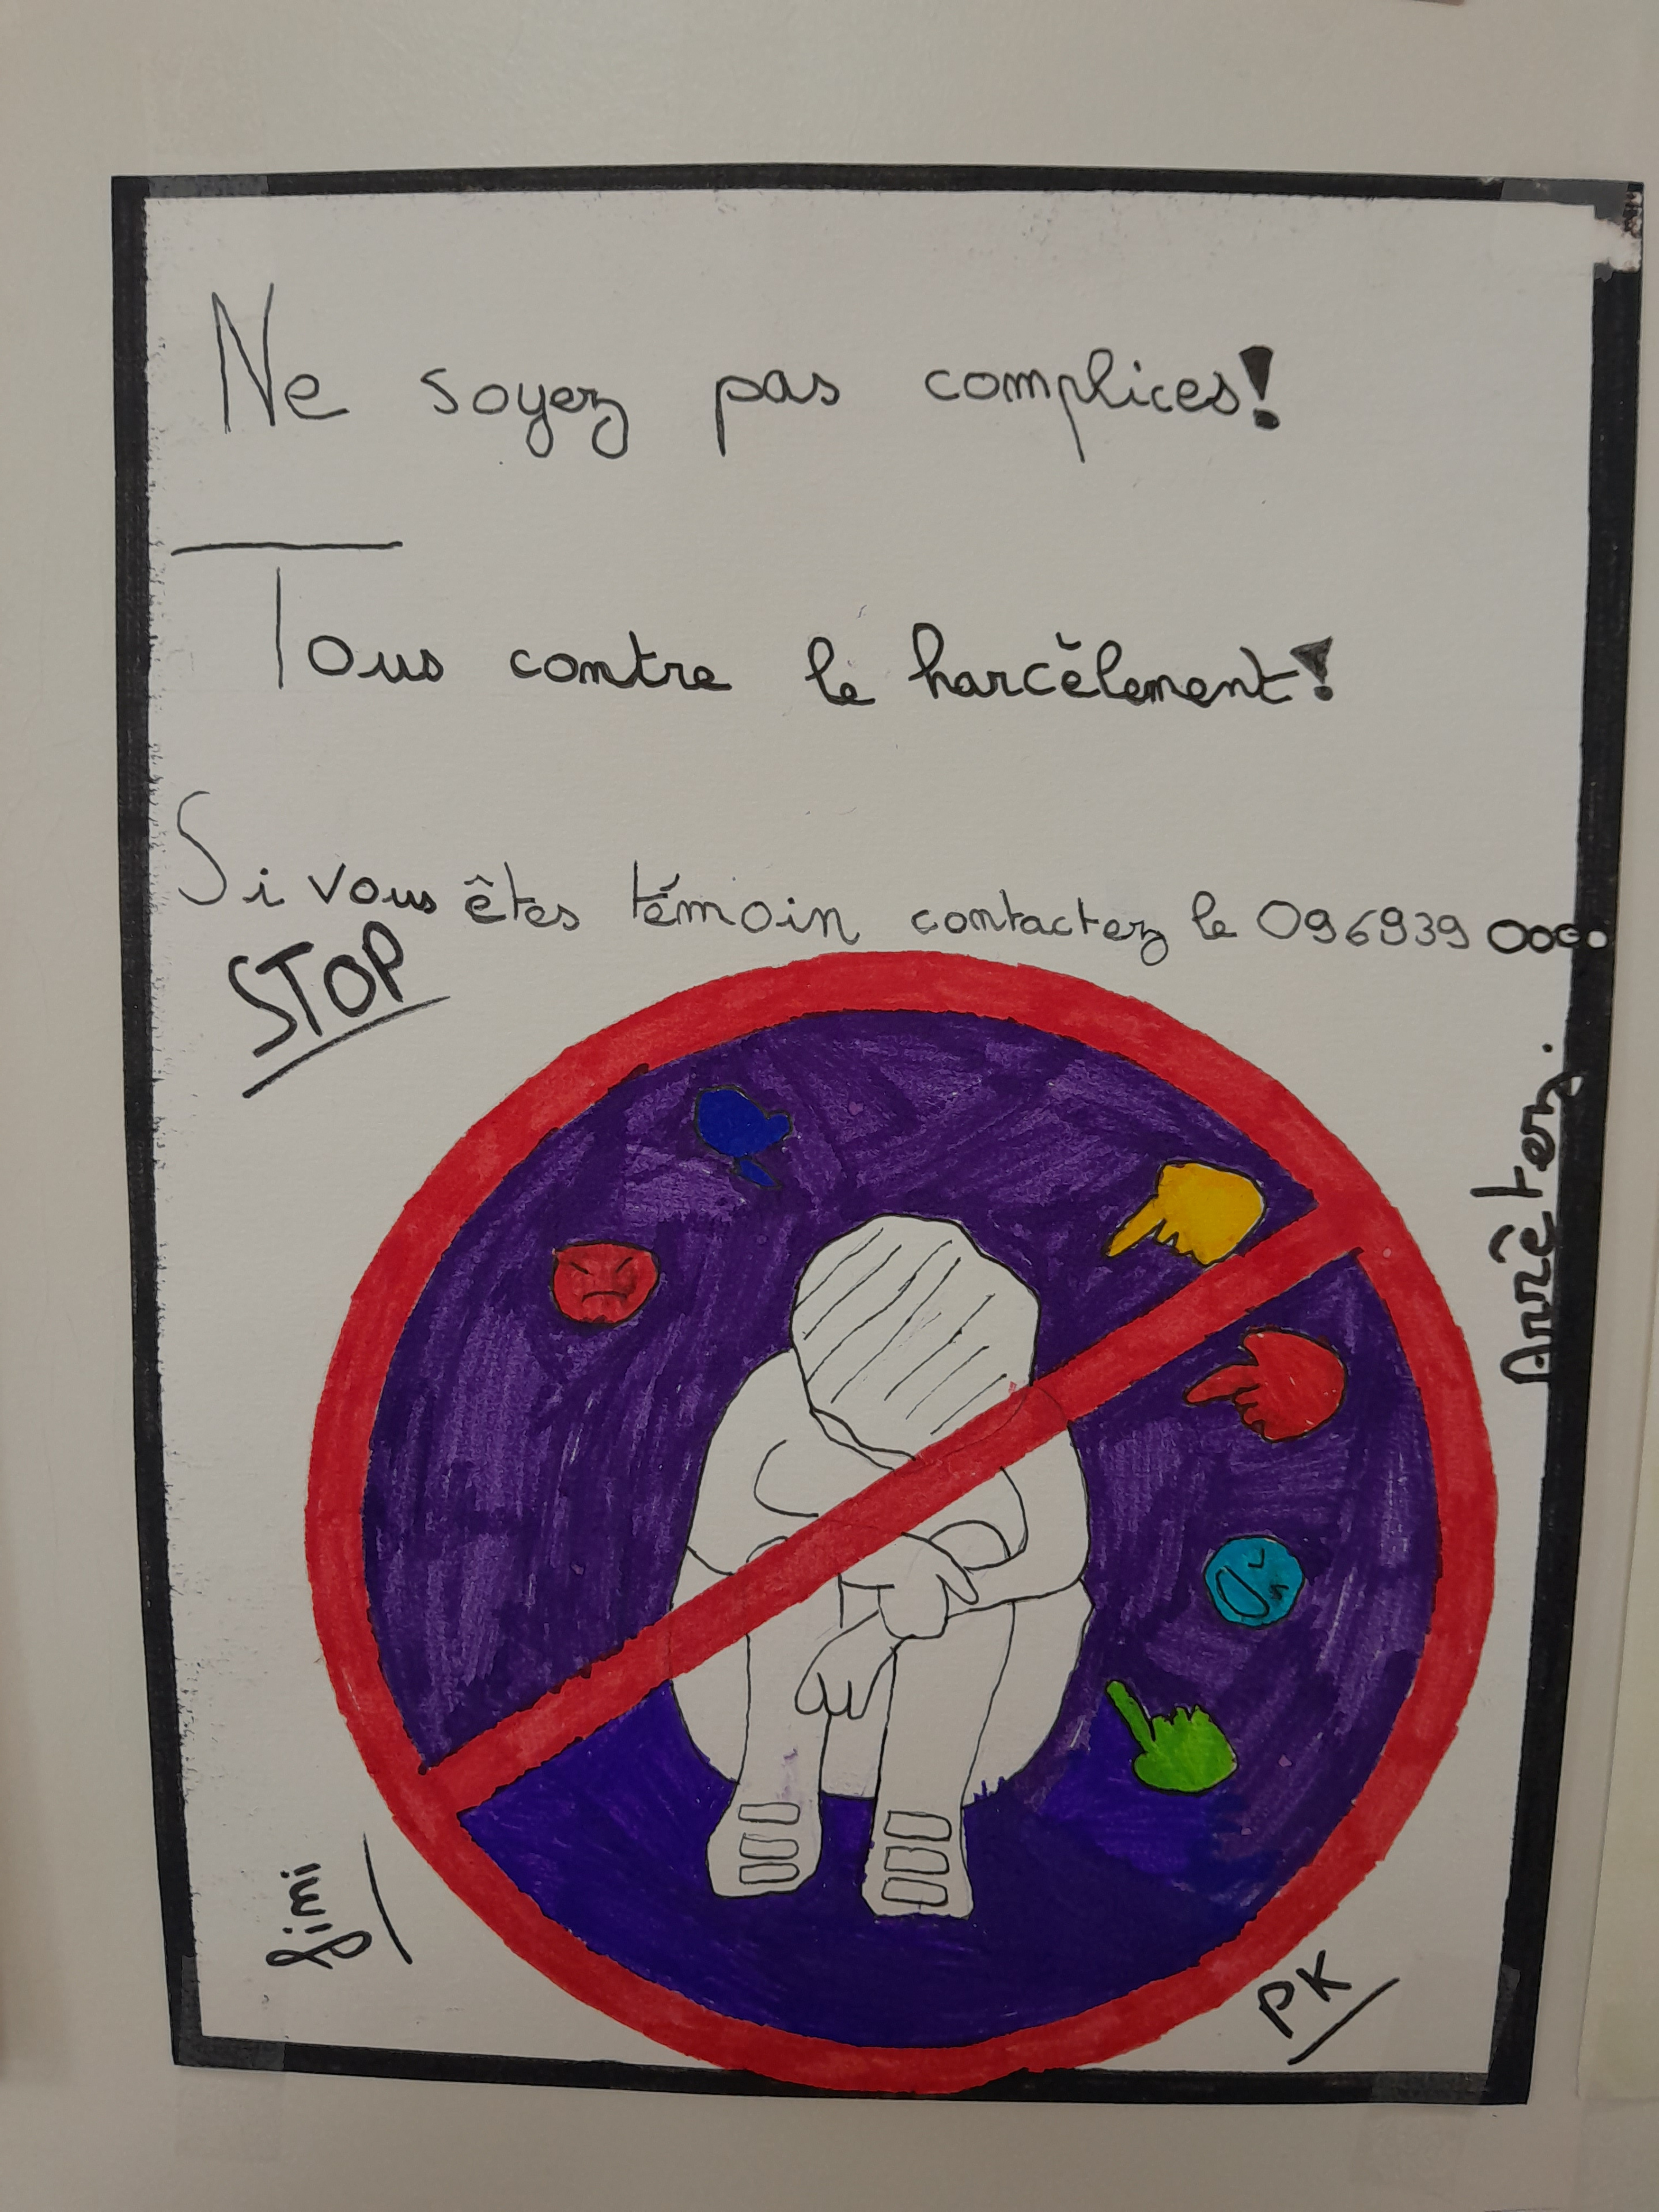 Ne soyez pas complices!
Tous contre le harcèlement!
Si vous êtes témoin contactez le 0969390000
STOP
Arrêtez.
fimi
PK